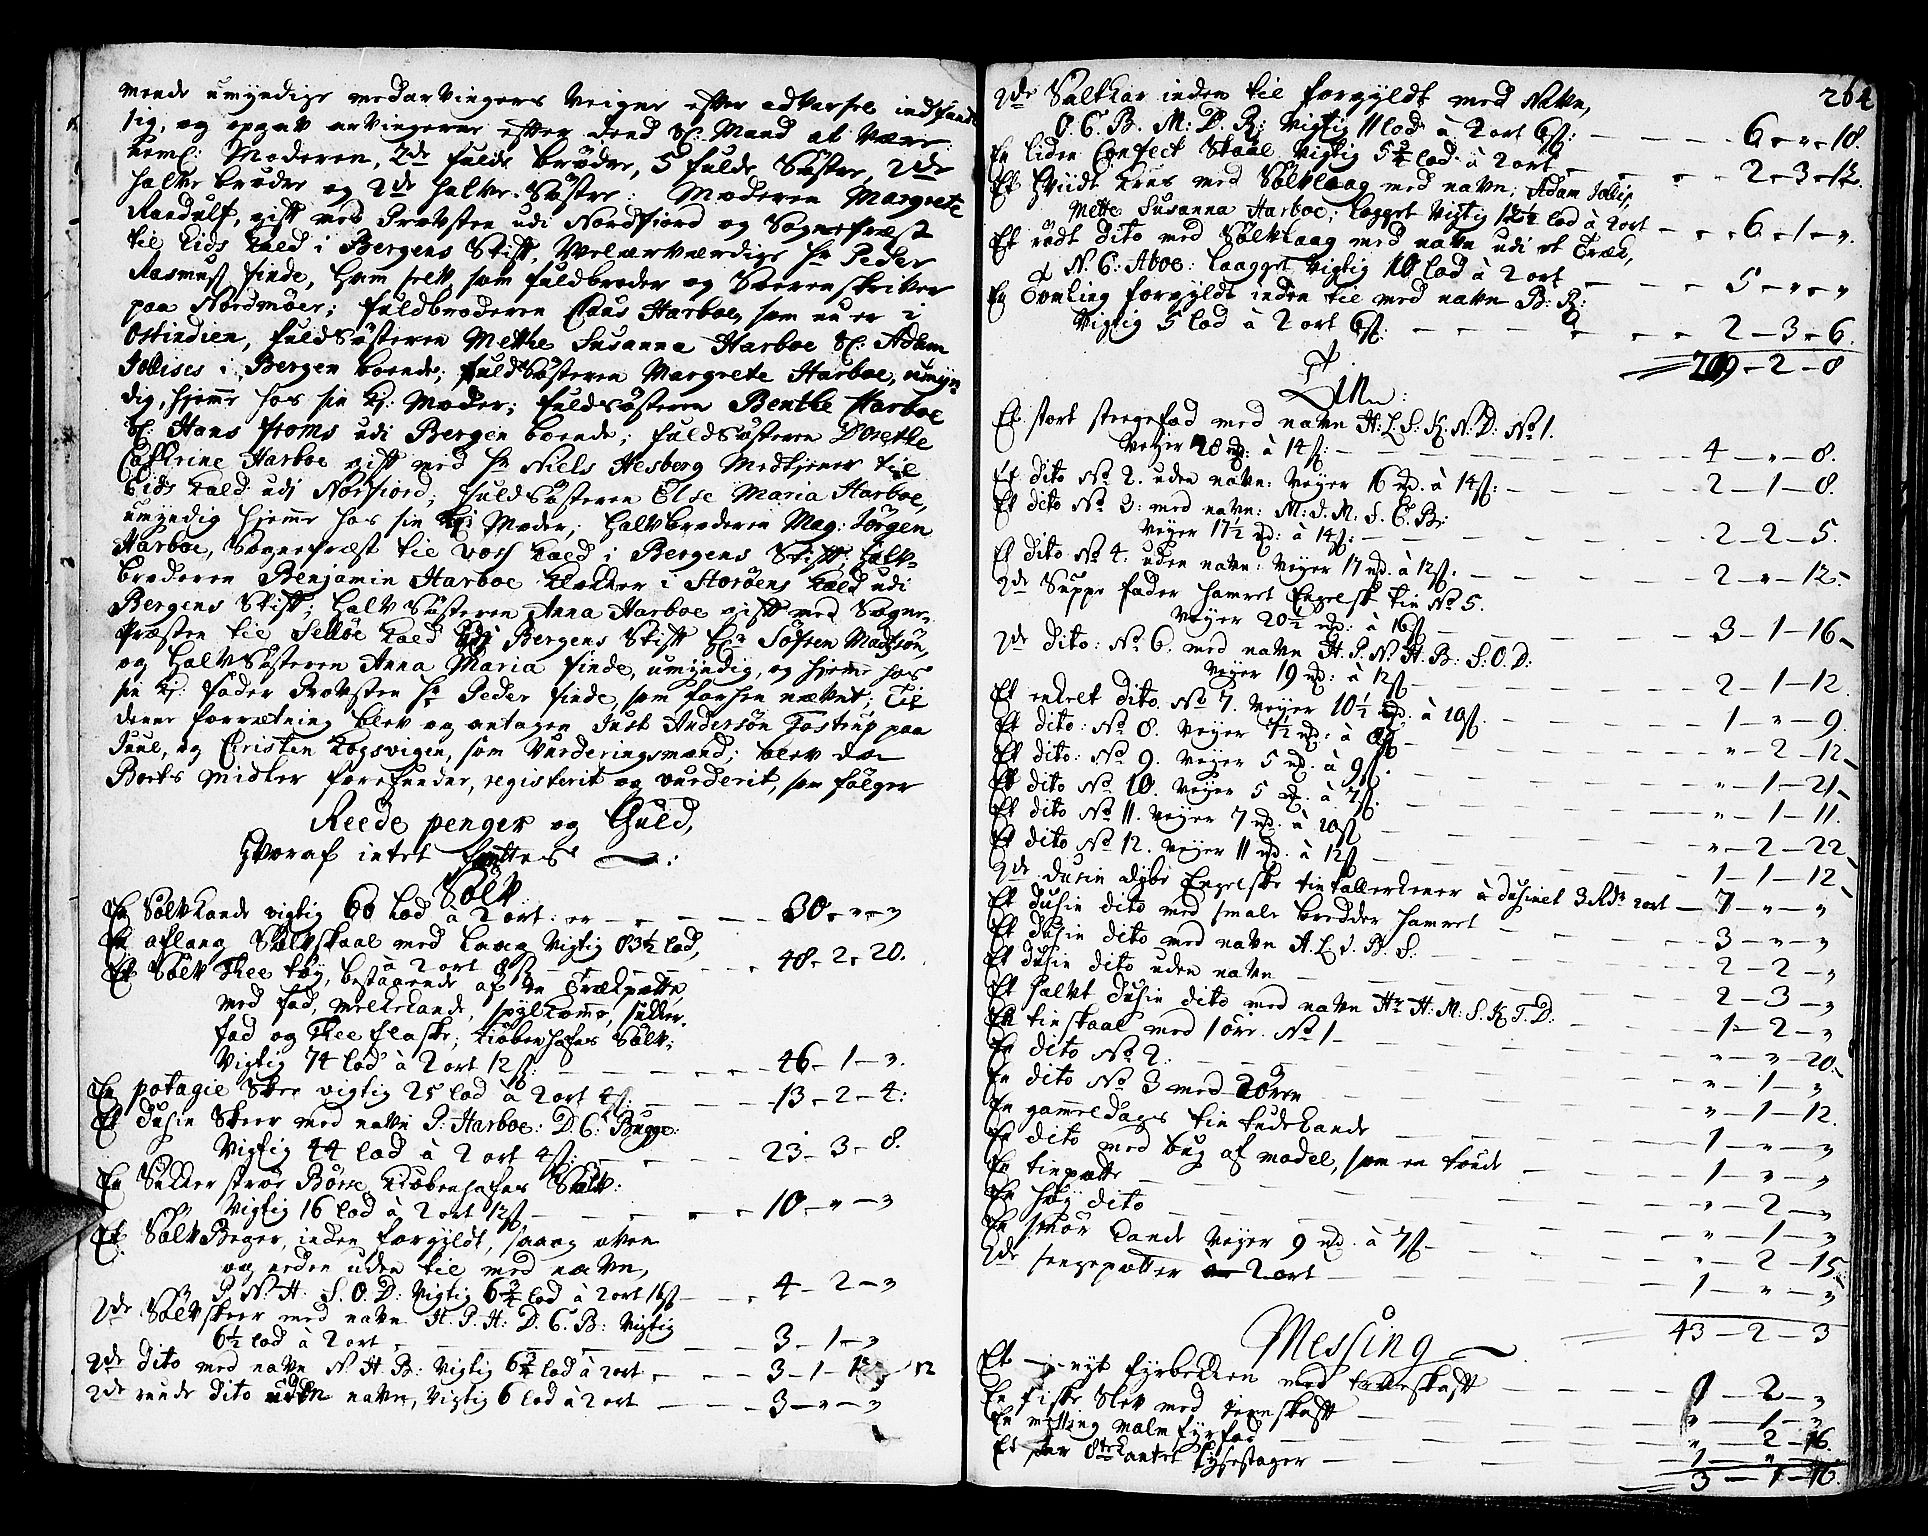 mende umyndige medarvingers veigne efter advarsel indfandt
sig, og opgav arvingerne efter dend Sl: Mand at være:
neml: Moderen, 2de fulde brødre, 5 fulde Søstre, 2de
halve brødre og 2de halve Søstre: Moderen Margrete
Randulf, gift med Provsten udi Nordfiord og Sognepræst
til Eids Kald i Bergens Stift, Velærværdige Hr Peder
Rasmus finde, ham selv som fuldbroder og Sorenskriver
paa Nordmøer; fuldbroderen Claus Harboe, som nu er i
Ostindien, fuldsøsteren Mette Susanna Harboe Sl: Adam
Jollises i Bergen boende; fuldsøsteren Margrete Harboe, umyn-
dig, hjemme hos sin Kj: Moder; fuldsøsteren Benthe Harboe
Sl: Hans froms udi Bergen boende; fuldsøsteren Dorethe
Cathrine Harboe gift med Hr Niels Hesberg Medtjener til
Eids Kald udi Norfiord; fuldsøsteren Else Maria Harboe,
umyndig hjemme hos sin Kj: Moder; halvbroderen Mag: Jørgen
Harboe, Sognepræst til Voss Kald i Bergens Stift; halv-
broderen Benjamin Harboe klokker i Storøens Kald udi
Bergens Stift; halvsøsteren Anna Harboe gift med Sogne-
præsten til Selløe Kald udi Bergens Stift Hr Søfren Madssøn,
og halvsøsteren Anna Maria finde, umyndig, og hjemme hos
sin Kj: fader Provsten Hr Peder finde, som forhen nævnt; Til
denne forretning blev og antagen Just Anderssøn Tostrup paa
Juul, og Cristen Kogsvigen, som Vurderingsmænd; blev da
Boets Midler forefunden, registerit og vurderit, som følger
Reede penger og Guld,
hvoraf intet fantes
Sølv
En Sølvkande vigtig 60 lod à 2 ort: er — 30 - " - "
En aflang Sølvskaal med Laag vigtig 83½ lod,
à 2 ort 8ß — 48 - 2 - 20.
Et Sølv Thee tøy, bestaaende af en Trækpotte,
med fad, melkekande, spylkomme, sukker-
fad og Thee flaske; kiøbenhafns Sølv:
Vigtig 74 lod à 2 ort 12ß: — 46 - 1 - "
En potagie Skee vigtig 25 lod à 2 ort 4ß: — 13 - 2 - 4:
Et dusin Skeer med navn P: Harboe: D. C: Bugge:
Vigtig 44 lod à 2 ort 4ß: — 23 - 3 - 8.
En Sukker strøe Børse kiøbenhafns Sølv:
Vigtig 16 lod à 2 ort 12ß — 10 - " - "
Et Sølv Beger, inden forgyldt, saaog oven
og neden uden til med navn,
P. N. H: S. O. D: Vigtig 6¾ lod à 2 ort 16ß — 4 - 2 - "
2de Sølvskeer med navn H. P. H: D. C. B: Vigtig
6½ lod à 2 ort — 3 - 1 - "
2de dito med navn N. H. B: Vigtig 6¾ lod à 2 ort — 3 - 1 - 12
2de runde dito uden navn, Vigtig 6 lod à 2 ort — 3 - " - "
264
2de Saltkar inden til forgyldt med Navn,
O. C. B. M: D. R: Vigtig 11 lod à 2 ort 6ß: — 6 - " - 18.
En liden Confect Skaal Vigtig 5¾ lod à 2 ort — 2 - 3 - 12.
Et hvidt Krus med Sølvlaag med navn; Adam Jollis,
Mette Susanna Harboe; Laagget Vigtig 12½ lod à 2 ort — 6 - 1 - "
Et rødt dito med Sølvlaag med navn udi et Træk,
N. C: Aboe: Laagget Vigtig 10 lod à 2 ort — 5 - " - "
En Tomling forgyldt inden til med navn B: R:
Vigtig 5 lod à 2 ort 6ß: — 2 - 3 - 6.
209 - 2 - 8
Tin:
Et stort steegefad med navn H: L. S: K: N: D: No 1.
Vejer 28 ℔: à 14ß: — 4 - " - 8.
Et dito No 2. uden navn: Vejer 16 ℔. à 14ß: — 2 - 1 - 8.
Et dito No 3: med navn: M: J. M: S. C. B:
Vejer 17½ ℔: à 14ß: — 2 - 2 - 5.
Et dito No 4: uden navn: Vejer 17 ℔. à 12ß: — 2 - " - 12.
2de Suppe fader hamret Engelsk tin No 5.
Vejer 20½ ℔: à 16ß — 3 - 1 - 16
2de dito: No 6. med navn H. P. N. H. B: S. O. D:
Vejer 19 ℔: à 12ß — 2 - 1 - 12.
Et enkelt dito No 7. Vejer 10½ ℔: à 10ß — 1 - " - 9.
Et dito: No 8. Vejer 7½ ℔: à 8ß — " - 2 - 12
Et dito: No 9. Vejer 5 ℔. à 9ß. — " - 1 - 21
Et dito No 10. Vejer 5 ℔. à 7ß. — " - 1 - 11.
Et dito No 11. Vejer 7 ℔. à 10ß — " - 2 - 22
Et dito No 12. Vejer 11 ℔. à 12ß — 1 - 1 - 12
2de dusin dybe Engelske tintallerkener à dusinet 3 Rdr 2 ort — 7 - " - "
Et dusin dito med smale bredder hamret — 3 - " - "
Et dusin dito med navn A. L. J. B. S: — 2 - 2 - "
Et dusin dito uden navn — 2 - 3 - "
Et halvt dusin dito med navn Hr H: M: S. K. T. D: — 1 - 2 - "
En tinskaal med 1 øre No 1 — " - " - 20.
En dito No 2: — " - 1 - "
En dito No 3 med 2 ører — " - 1 - 12.
En gammeldags tin tudekande — 1 - " - "
En dito med bug af model, som en tønde — 1 - " - "
En tinpotte — " - 2 - "
En høy dito — " - 1 - "
En smør Kande Vejer 9 ℔. à 7ß — " - 2 - 15
2de sengepotter 2 ort — 1 - " - "
43 - 2 - 3
Messing
Et nyt fyrbekken med træskaft — 1 - 2 - "
En fiske Slev med jernskaft — " - 1 - "
En messing malm fyrfad — " - 2 - 16
Et par 8te kantet lysestager — 1 - " - "
3 - 1 - 16.